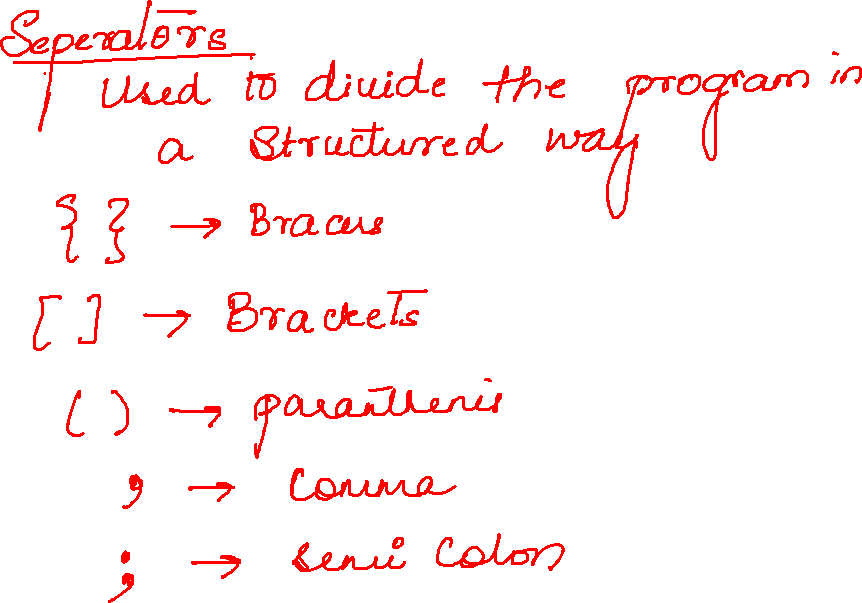 Seperators
Used to divide the program in
a Structured way
{ } → Braces
[ ] → Brackets
( ) → paranthesis
, → Comma
; → Semi Colon